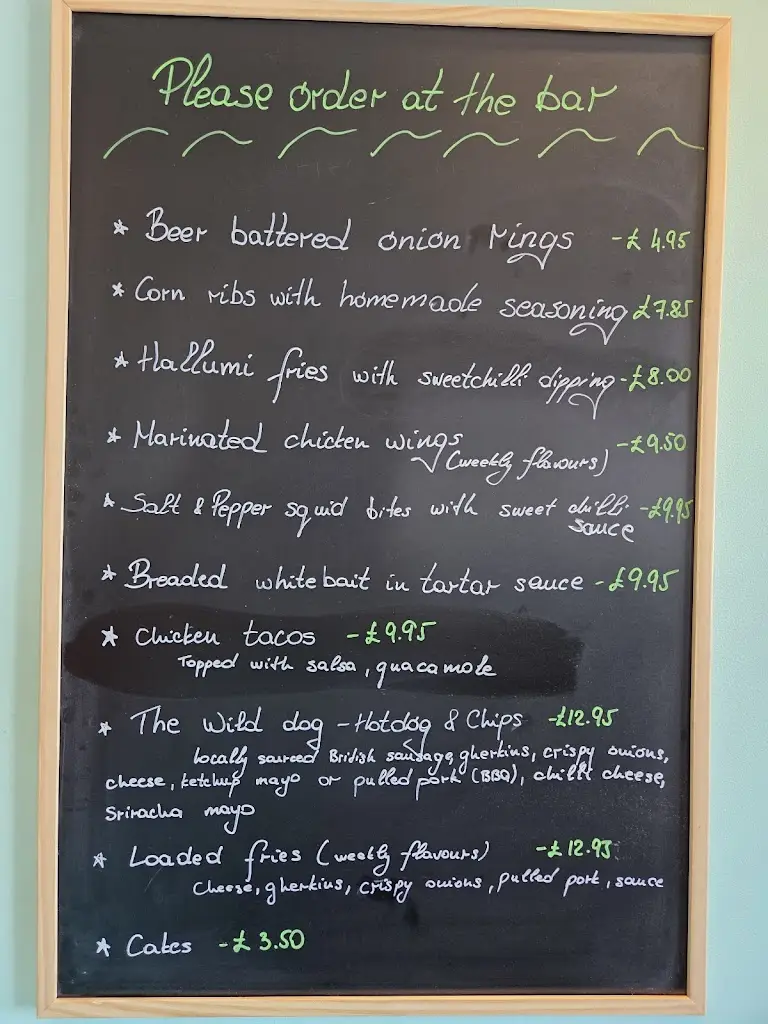 Please order at the bar
* Beer battered onion rings -£4.95
* Corn ribs with homemade seasoning £7.85
* Hallumi fries with sweetchilli dipping -£8.00
* Marinated chicken wings -£9.50
(weekly flavours)
* Salt & Pepper squid bites with sweet chilli -£9.95
sauce
* Breaded whitebait in tartar sauce -£9.95
* Chicken tacos -£9.95
Topped with salsa, guacamole
* The Wild dog - Hotdog & Chips -£12.95
locally sourced British sausage, gherkins, crispy onions,
cheese, ketchup mayo or pulled pork (BBQ), chilli cheese,
Sriracha mayo
* Loaded fries (weekly flavours) -£12.95
Cheese, gherkins, crispy onions, pulled pork, sauce
* Cakes -£3.50